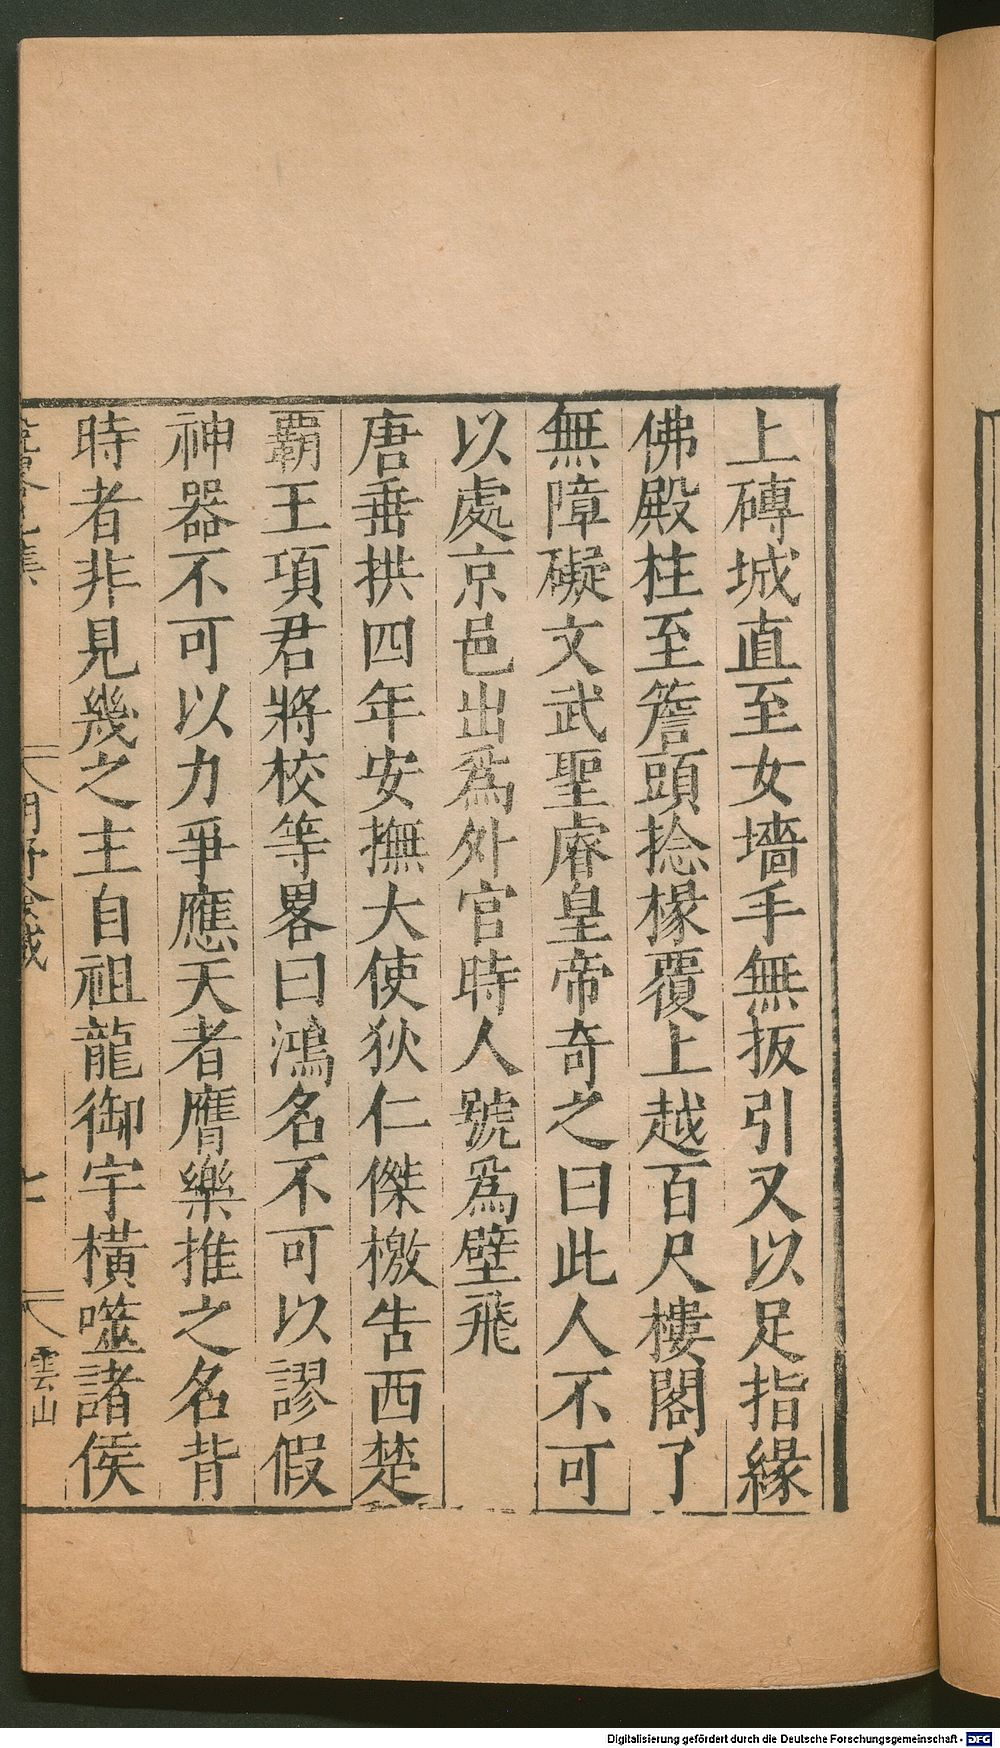 上磚城直至女墻手無扳引又以足指緣
佛殿柱至簷頭捻椽覆上越百尺樓閣了
無障礙文武聖睿皇帝奇之曰此人不可
以處京邑出爲外官時人號爲壁飛
唐垂拱四年安撫大使狄仁傑檄告西楚
覇王項君將校等畧曰鴻名不可以謬假
神器不可以力爭應天者膺樂推之名背
時者非見幾之主自祖龍御宇橫噬諸侯
七
雲山
Digitalisierung gefördert durch die Deutsche Forschungsgemeinschaft - DFG